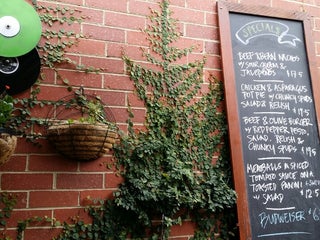 SPECIALS
BEEF & BEAN NACHOS
W SOUR CREAM &
JALAPENOS $19.5
CHICKEN & ASPARAGUS
POT PIE W CHUNKY SPUDS
SALAD & RELISH $19.5
BEEF & OLIVE BURGER
W RED PEPPER PESTO,
SALAD, RELISH &
CHUNKY SPUDS $19.5
MEATBALLS & SPICED
TOMATO SAUCE ON A
TOASTED PANINI
W SALAD $12.5
BUDWEISER